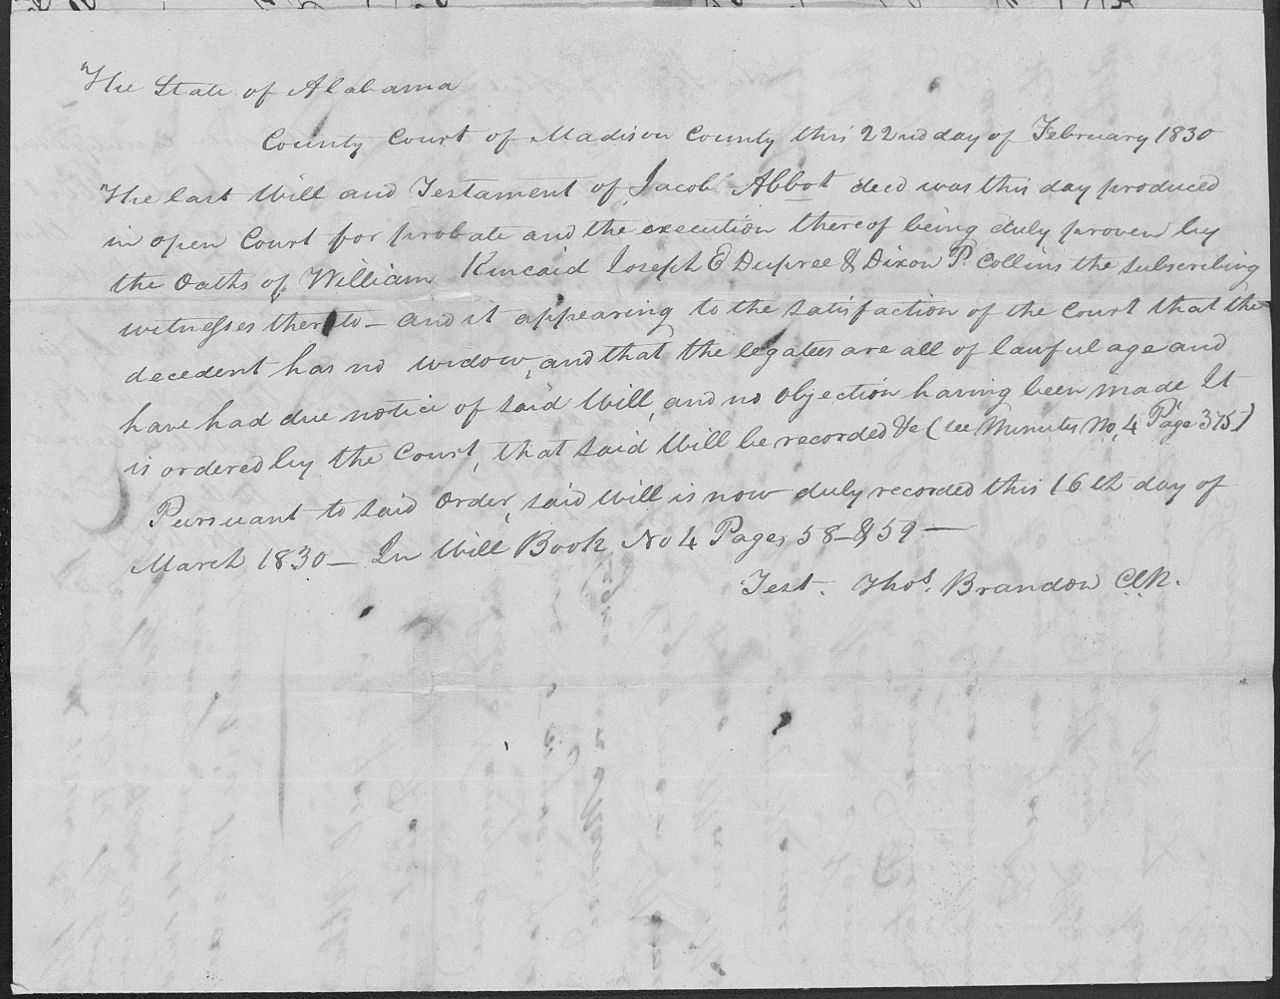 The State of Alabama
County Court of Madison County this 22nd day of February 1830
The last Will and Testament of Jacob Abbot decd was this day produced
in open Court for probate and the execution thereof being duly proven by
the Oaths of William Kincaid Joseph E Dupree & Dixon P. Collins the subscribing
witnesses thereto - and it appearing to the satisfaction of the Court that the
decedent has no widow, and that the legatees are all of lawful age and
have had due notice of said Will, and no Objection having been made It
is ordered by the Court, that said Will be recorded &c (see Minutes No, 4 Page 375)
Pursuant to said Order, said Will is now duly recorded this 16th day of
March 1830 - In Will Book No 4 Pages 58 - & 59 -
Test. Thos. Brandon Clk.